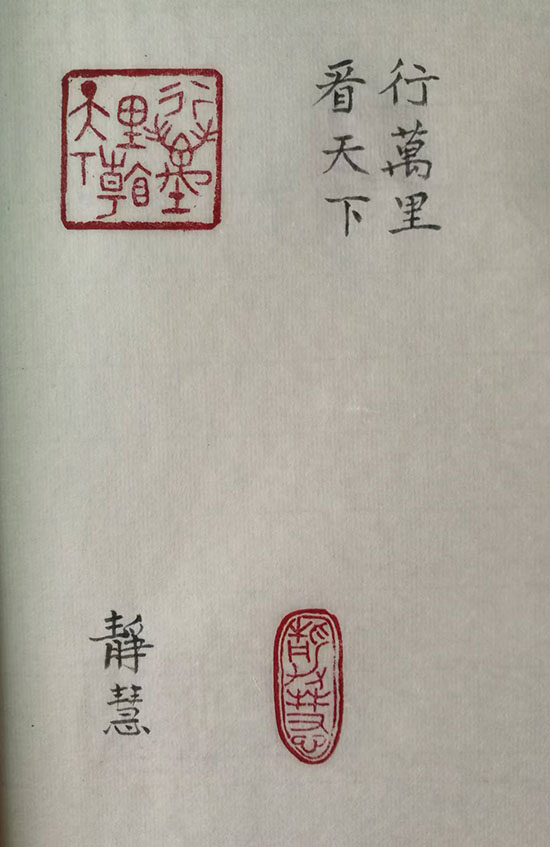 行萬里
看天下
行萬
里看
天下
靜慧
靜慧